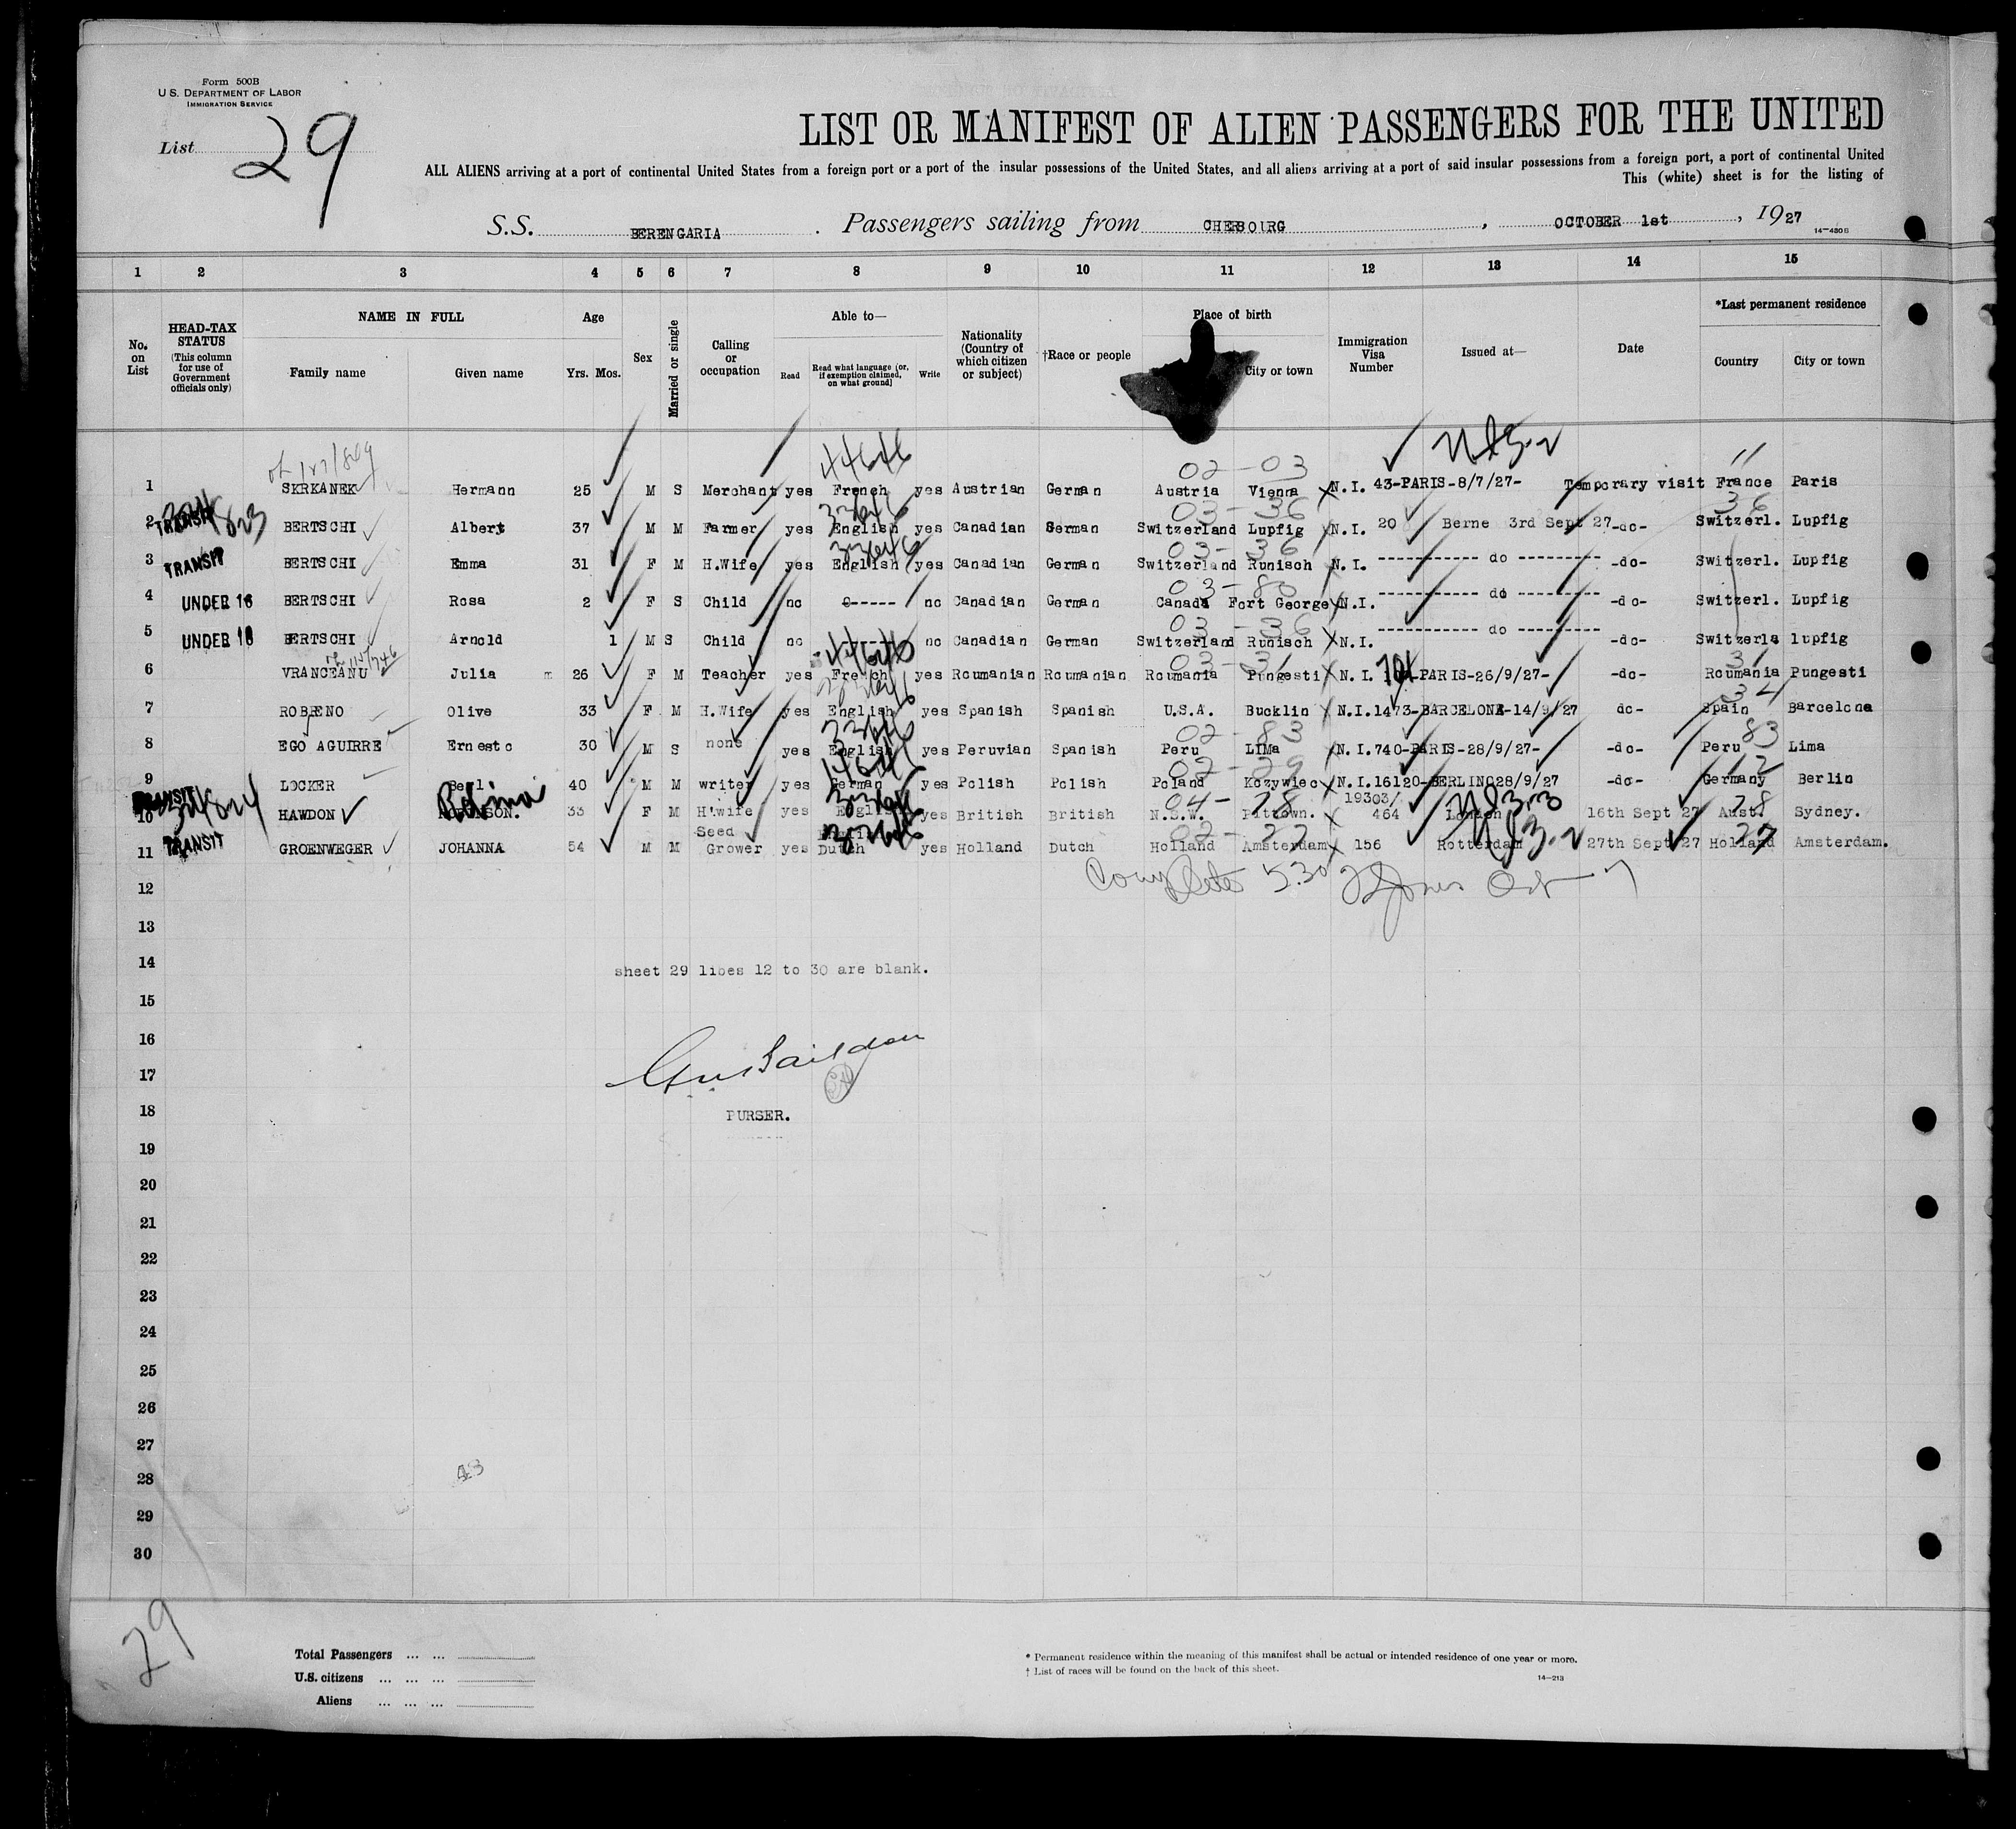 Form 500B
U.S. DEPARTMENT OF LABOR
IMMIGRATION SERVICE
List 29
LIST OR MANIFEST OF ALIEN PASSENGERS FOR THE UNITED
ALL ALIENS arriving at a port of continental United States from a foreign port or a port of the insular possessions of the United States, and all aliens arriving at a port of said insular possessions from a foreign port, a port of continental United
This (white) sheet is for the listing of
S.S. BERENGARIA. Passengers sailing from CHERBOURG, OCTOBER 1st, 1927
14-430B
1 2 3 4 5 6 7 8 9 10 11 12 13 14 15
No. on List
HEAD-TAX STATUS (This column for use of Government officials only)
NAME IN FULL
Family name Given name
Age
Yrs. Mos.
Sex
Married or single
Calling or occupation
Able to—
Read Read what language [or, if exemption claimed, on what ground] Write
Nationality (Country of which citizen or subject)
†Race or people
Place of birth
City or town
Immigration Visa Number
Issued at—
Date
*Last permanent residence
Country City or town
44646 02-03 11
1 SKRKANEK Hermann 25 M S Merchant yes French yes Austrian German Austria Vienna N.I. 43-PARIS-8/7/27- Temporary visit France Paris
33646 03-36 36
2 TRANSIT BERTSCHI Albert 37 M M Farmer yes English yes Canadian German Switzerland Lupfig N.I. 20 Berne 3rd Sept 27 -do- Switzerl. Lupfig
33646 03-36
3 TRANSIT BERTSCHI Emma 31 F M H.Wife yes English yes Canadian German Switzerland Runisch N.I. ----------- do --------- -do- Switzerl. Lupfig
03-80
4 UNDER 16 BERTSCHI Rosa 2 F S Child no 0----- no Canadian German Canada Fort George N.I. ----------- do --------- -do- Switzerl. Lupfig
03-36
5 UNDER 16 BERTSCHI Arnold 1 M S Child no no Canadian German Switzerland Runisch N.I. ----------- do --------- -do- Switzerls lupfig
44646 03-31 31
6 VRANCEANU Julia m 26 F M Teacher yes French yes Roumanian Roumanian Roumania Pungesti N.I. PARIS-26/9/27- -do- Roumania Pungesti
34
7 ROBRENO Olive 33 F M H.Wife yes English yes Spanish Spanish U.S.A. Bucklin N.I.1473-BARCELONA-14/9/27 do- Spain Barcelona
33646 02-83 83
8 EGO AGUIRRE Ernesto 30 M S none yes English yes Peruvian Spanish Peru LIMa N.I.740-PARIS-28/9/27- -do- Peru Lima
02-29 12
9 LOCKER Berl 40 M M writer yes German yes Polish Polish Poland Kozywiec N.I.16120-BERLINO28/9/27 -do- Germany Berlin
04-78 19303/ 78
10 TRANSIT HAWDON ROBINSON. 33 F M H'wife yes English yes British British N.S.W. Pittown. 464 London 16th Sept 27 Aust. Sydney.
02-27 27
11 TRANSIT GROENWEGER JOHANNA 54 M M Seed Grower yes Dutch yes Holland Dutch Holland Amsterdam 156 Rotterdam 27th Sept 27 Holland Amsterdam.
12
Complete 5.30 Oct
13
14 sheet 29 lines 12 to 30 are blank.
15
16
17
18 PURSER.
19
20
21
22
23
24
25
26
27
28
29
30
29
Total Passengers ... ...
U.S. citizens ... ... ...
Aliens ... ... ...
* Permanent residence within the meaning of this manifest shall be actual or intended residence of one year or more.
† List of races will be found on the back of this sheet.
14-213